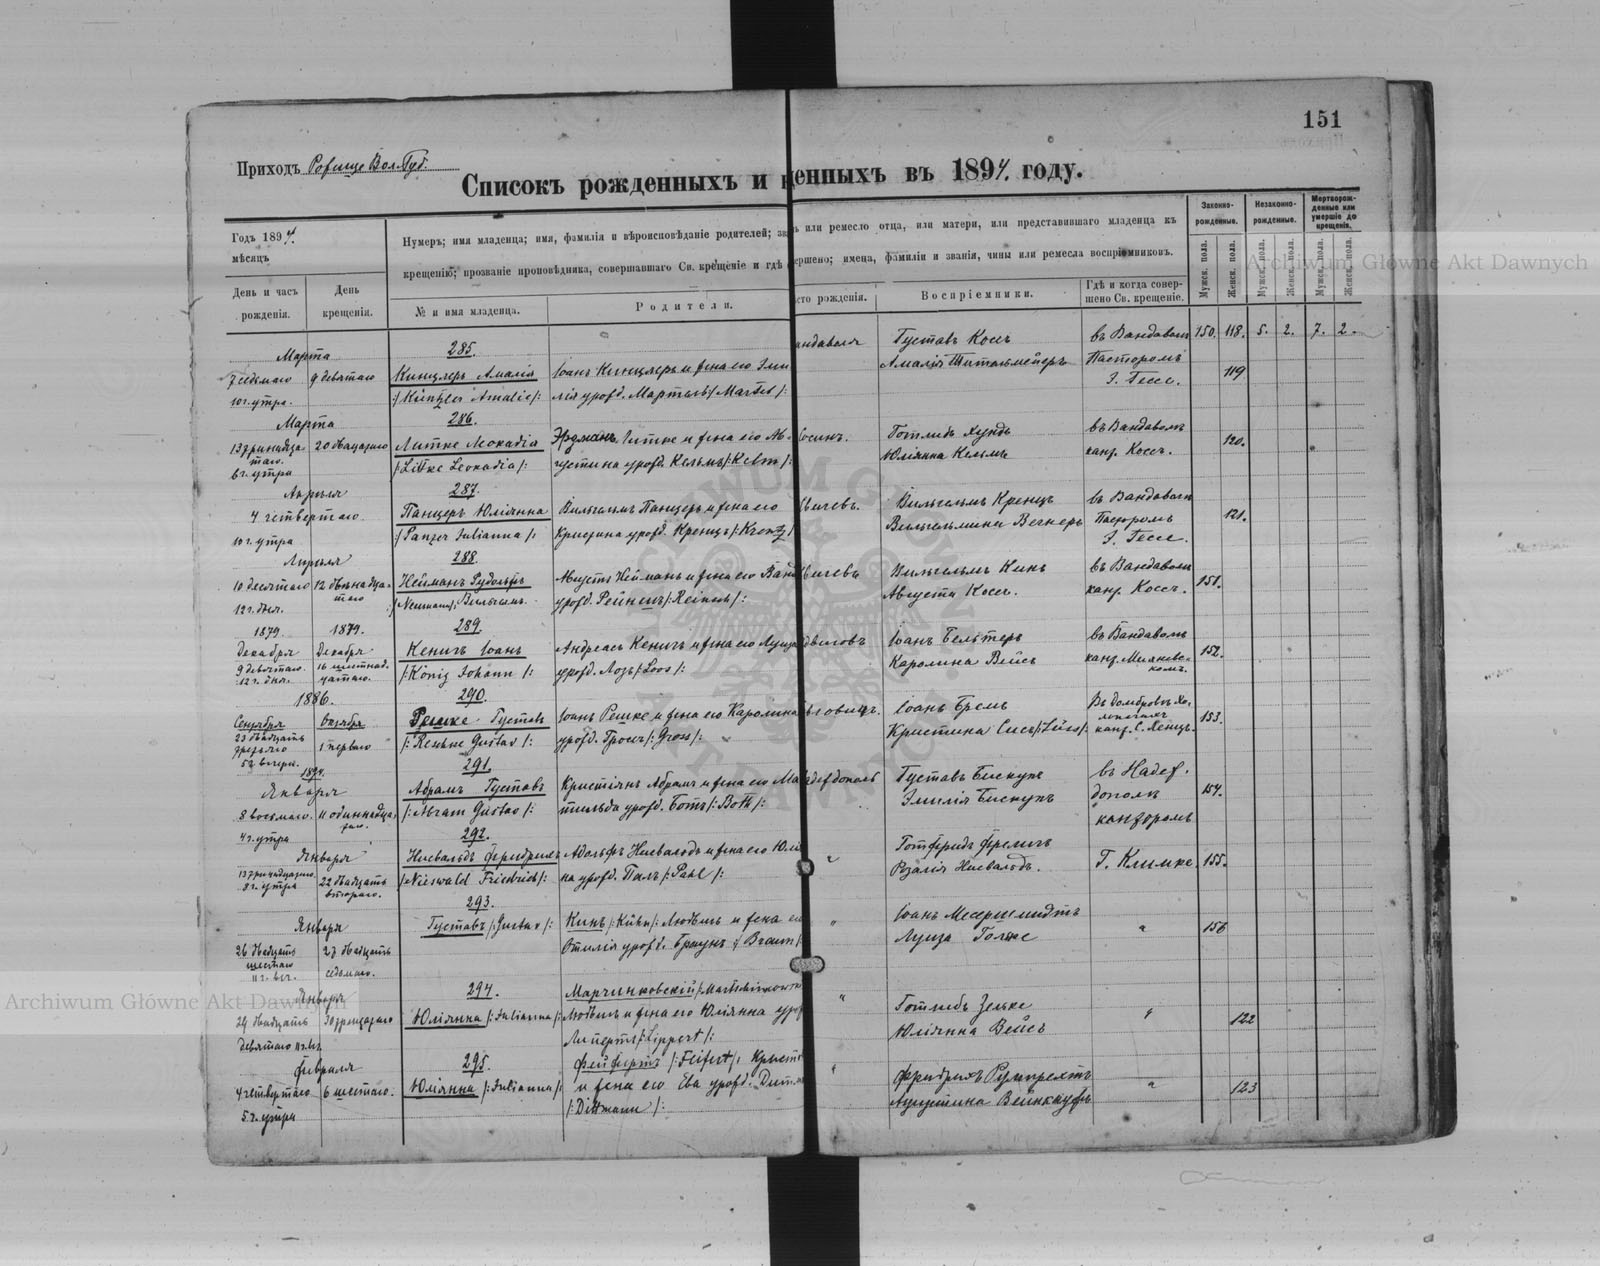 151
Приходъ Рожище Вол. Губ.
Списокъ рожденныхъ и
щенныхъ въ 1894. году.
Годъ 1894.
мѣсяцъ
День и часъ
рожденія.
День
крещенія.
Нумеръ; имя младенца; имя, фамилія и вѣроисповѣданіе родителей;
крещенію; прозваніе проповѣдника, совершавшаго Св. крещеніе и гдѣ
или ремесло отца, или матери, или представившаго младенца къ
вершено; имена, фамиліи и званія, чины или ремесла воспріемниковъ.
№ и имя младенца.
Родители.
сто рожденія.
Воспріемники.
Гдѣ и когда совер-
шено Св. крещеніе.
Законно-
рожденные.
Незаконно-
рожденные.
Мертворож-
денные или
умершіе до
крещенія.
Мужск. пола.
Женск. пола.
Мужск. пола.
Женск. пола.
Мужск. пола.
Женск. пола.
150. 118. 5. 2. 7. 2.
Марта
7 седьмаго
10 г. утра.
9 девятаго
285.
Кинцлеръ Амалія
/: Küntzler Amalie :/
Іоанъ Кинцлеръ и жена его Эми
лія урожд. Мартель /: Martel :/
андаволя
Густавъ Коссъ
Амалія Шительмейеръ
въ Вандаволи
Пасторомъ
Э. Гессе.
119
Марта
13 тринадца-
таго.
6 г. утра
20 двадцатаго
286.
Литке Леокадія
/: Littke Leokadia :/
Эрдманъ Литке и жена его Ав-
густина урожд. Кельмъ /: Kelm :/
Готлибъ Хундъ
Юліянна Кельмъ
въ Вандаволи
кан. Коссъ.
120.
Апрѣля
4 четвертаго
10 г. утра
287.
Панцеръ Юліянна
/: Panzer Julianna :/
Вильгельмъ Панцеръ и жена его
Кристина урожд. Кренцъ /: Krentz :/
Вильгельмъ Кренцъ
Вильгельмина Вегнеръ
въ Вандаволи
Пасторомъ
Э. Гессе.
121.
Апрѣля
10 десятаго
12 г. дня.
12 двѣнадца-
таго
288.
Нейманъ Рудольфъ
/: Neumann :/ Вильгельмъ.
Августъ Нейманъ и жена его Ванд
урожд. Рейнель /: Reinel :/
Вильгельмъ Кинъ
Августа Коссъ.
въ Вандаволи
кан. Коссъ.
151.
1879.
Декабря
9 девятаго.
12 г. дня.
1879.
Декабря
16 шестнад-
цатаго.
289.
Кенигъ Іоанъ
/: König Johann :/
Андреасъ Кенигъ и жена его Луиза
урожд. Лозъ /: Loos :/
Іоанъ Бельтеръ
Каролина Вейсъ
въ Вандаволи
152.
1886.
Сентября
23 двадцать
третьяго
5 г. вечера.
Октября
1 перваго
290.
Решке Густавъ
/: Reschke Gustav :/
Іоанъ Решке и жена его Каролина
урожд. Гроссъ /: Gross :/
Іоанъ Бремъ
Кристина Сисъ
153.
1894.
Января
8 восьмаго.
4 г. утра
11 одиннадца-
таго.
291.
Абрамъ Густавъ
/: Abram Gustav :/
Кристіянъ Абрамъ и жена его Ма
тильда урожд. Ботъ /: Bott :/
адеждополь
Густавъ Бискупъ
Эмилія Бискупъ
въ Надеж.
дополѣ
канторомъ
154.
Января
13 тринадцатаго
8 г. утра
22 двадцать
втораго.
292.
Нисвальдъ Фридрихъ
/: Nieswald Friedrich :/
Адольфъ Нисвальдъ и жена его Юлі
на урожд. Палъ /: Pahl :/
"
Готфридъ Фрелихъ
Розалія Нисвальдъ.
Г. Климке.
155.
Января
26 двадцать
шестаго
11 г. веч.
27 двадцать
седьмаго.
293.
Густавъ /: Gustav :/
Кинъ /: Kühn :/ Людвигъ и жена его
Отилія урожд. Браунъ /: Braun :/
"
Іоанъ Месершмидтъ
Луиза Голтке
"
156
Января
29 двадцать
девятаго 11 г. веч.
30 тридцатаго
294.
Юліянна /: Julianna :/
Марчинковскій /: Martschinkowski
Людвигъ и жена его Юліянна урож
Липертъ /: Lippert :/
"
Готлибъ Зельке
Юліянна Вейсъ
"
122
Февраля
4 четвертаго
5 г. утра
6 шестаго.
295.
Юліянна /: Julianna :/
Фейфертъ /: Feifert :/ Кристі
и жена его Ева урожд. Дитм
/: Dittmann :/
"
Фридрихъ Румпрехтъ
Августина Вейнкауфъ
"
123
Archiwum Główne Akt Dawnych
Archiwum Główne Akt Dawnych